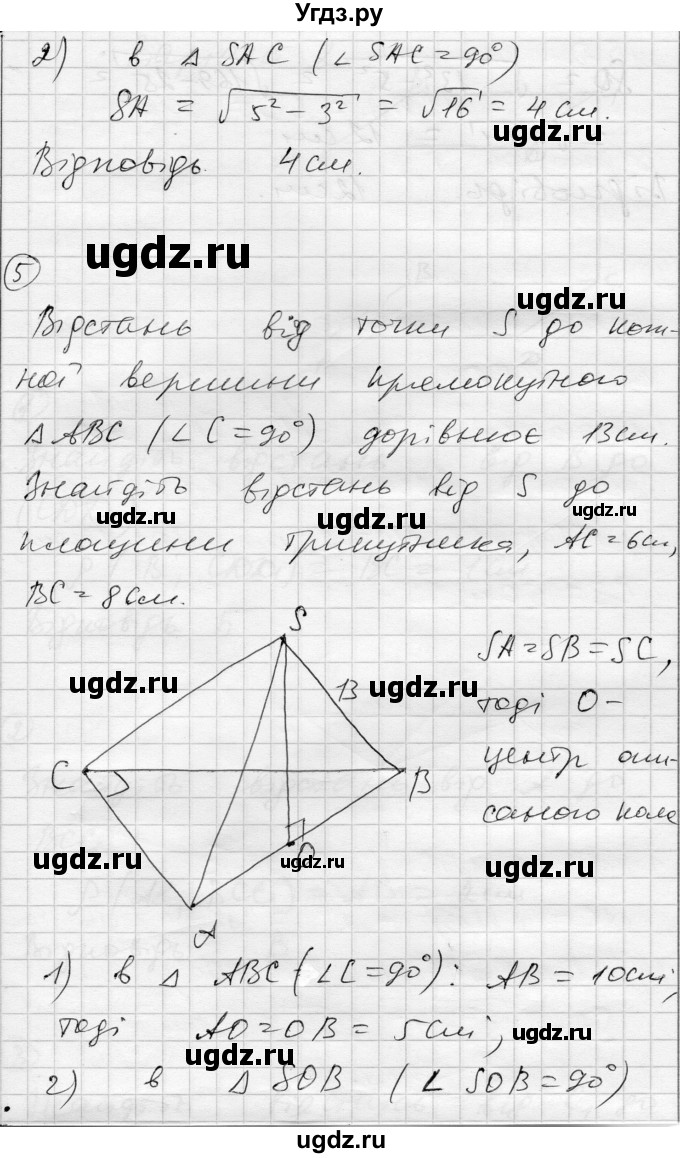 Угдз.ру
2) в Δ SAC (∠ SAC = 90°)
SA = √5² - 3² = √16 = 4 см.
ugdz.ru
Відповідь. 4 см.
ugdz.ru
5
ugdz.ru
Відстань від точки S до кож-
ної вершини прямокутного
Δ ABC (∠ C = 90°) дорівнює 13 см.
Знайдіть відстань від S до
ugdz.ru ugdz.ru ugdz.ru
площини трикутника, AC = 6 см,
BC = 8 см.
S
SA = SB = SC,
ugdz.ru 13 ugdz.ru
тоді O -
C B центр опи-
саного кола
ugdz.ru ugdz.ru O ugdz.ru
A
1) в Δ ABC (∠ C = 90°): AB = 10 см;
тоді AO = OB = 5 см;
ugdz.ru ugdz.ru
2) в Δ SOB (∠ SOB = 90°)
ugdz.ru